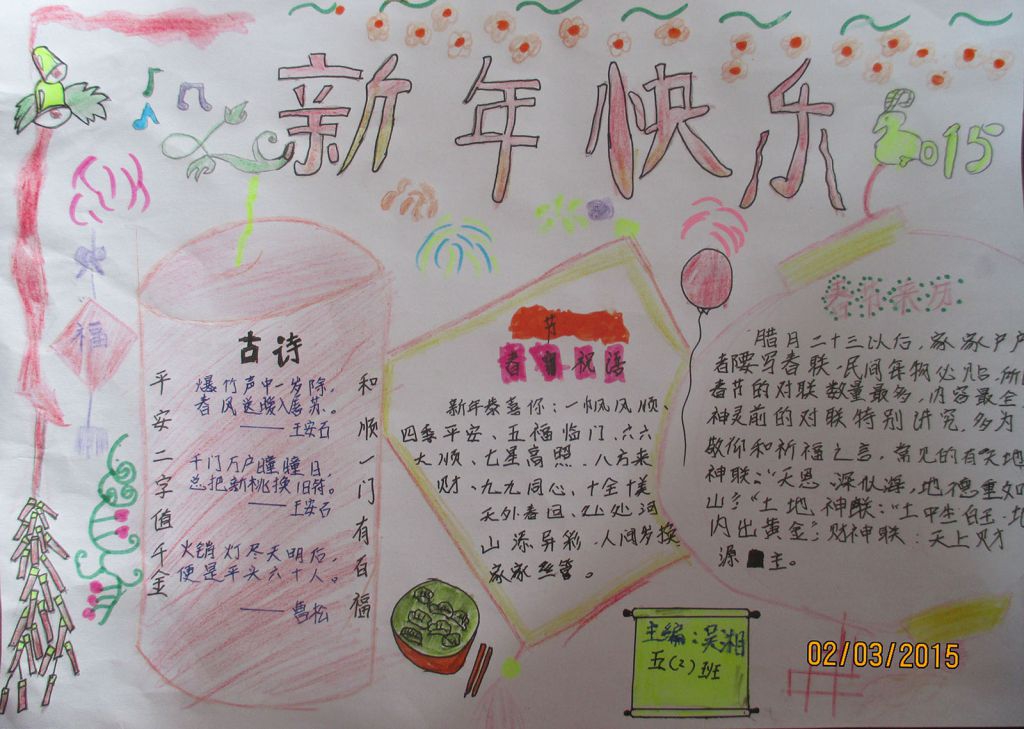 新年快乐
2015
福
古诗
平安二字值千金
爆竹声中一岁除,
春风送暖入屠苏。
——王安石
千门万户曈曈日,
总把新桃换旧符。
——王安石
火销灯尽天明后,
便是平头六十人。
——曹松
和顺一门有百福
春节祝语
新年恭喜你:一帆风顺、
四季平安、五福临门、六六
大顺、七星高照、八方来
财、九九同心、十全十美
天外春回、处处河
山添异彩,人间岁换
家家丝管。
春节来历
腊月二十三以后,家家户户
都要写春联,民间年物必
春节的对联数量最多,内容最全
神灵前的对联特别讲究,多为
敬仰和祈福之言,常见的有天地
神联:“天恩深似海,地德重如
山”;“土地神联:“土中生白玉,地
内出黄金”;财神联:天上财
源 主。
主编:吴湘
五(2)班
02/03/2015